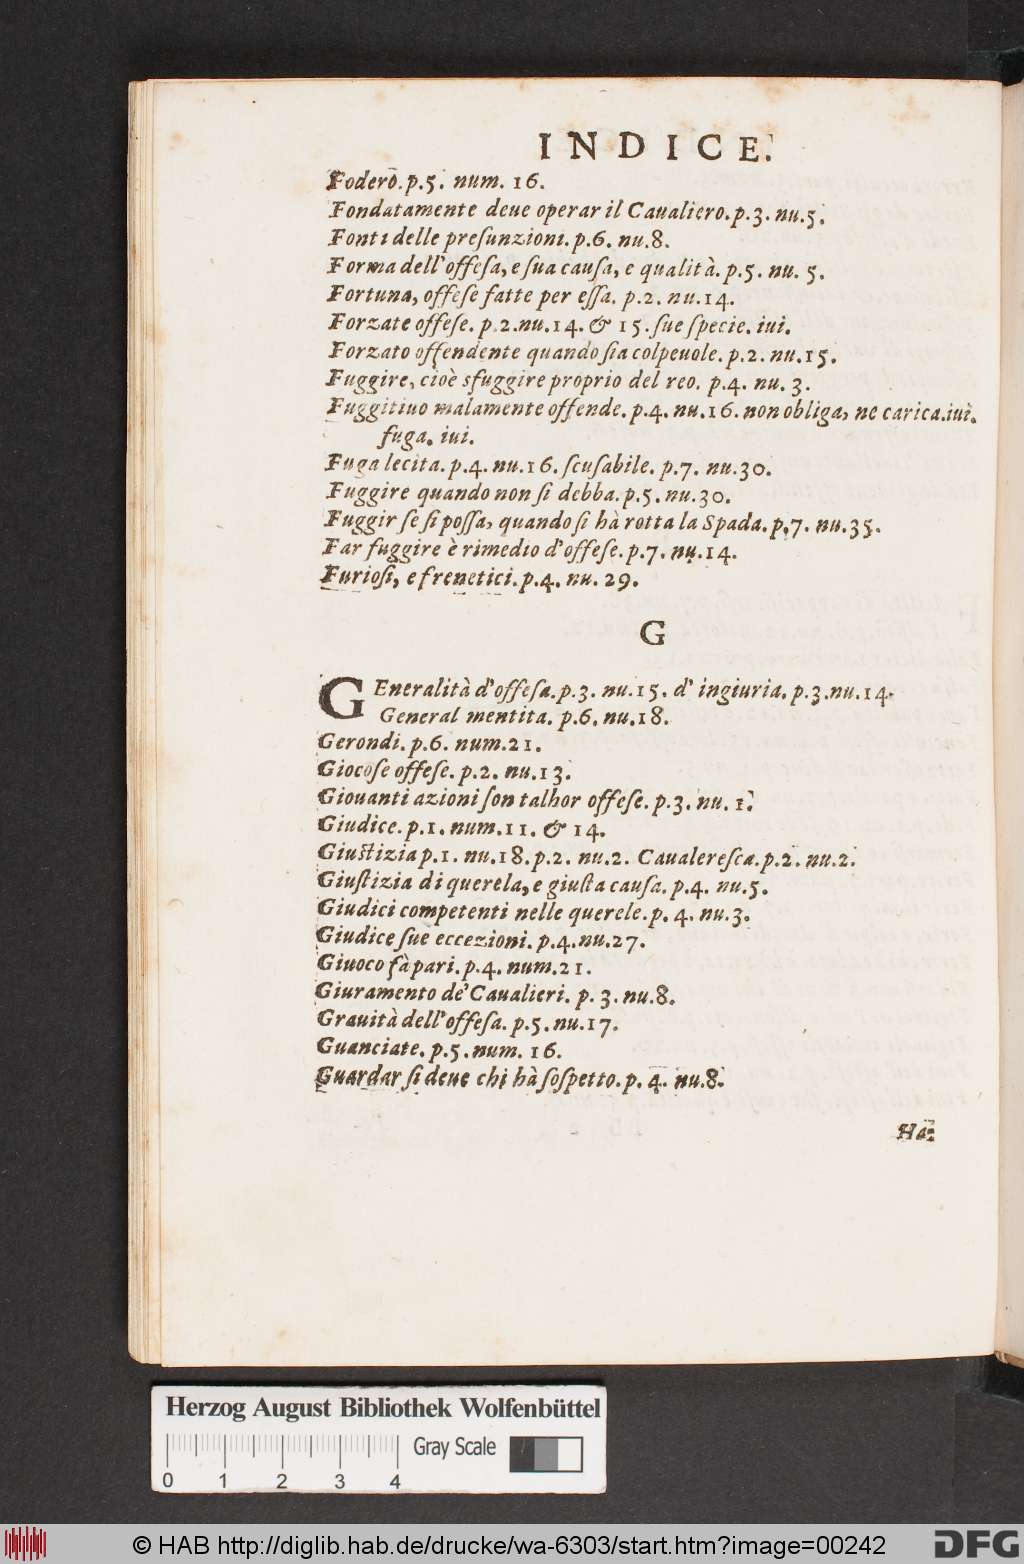 INDICE.
Fodero. p.5. num. 16.
Fondatamente deue operar il Caualiero. p.3. nu.5.
Fonti delle presunzioni. p.6. nu.8.
Forma dell'offesa, e sua causa, e qualità. p.5. nu. 5.
Fortuna, offese fatte per essa. p.2. nu.14.
Forzate offese. p.2.nu.14. & 15. sue specie. iui.
Forzato offendente quando sia colpeuole. p.2. nu.15.
Fuggire, cioè sfuggire proprio del reo. p.4. nu. 3.
Fuggitiuo malamente offende. p.4. nu.16. non obliga, ne carica.iui.
fuga. iui.
Fuga lecita. p.4. nu.16. scusabile. p.7. nu.30.
Fuggire quando non si debba. p.5. nu.30.
Fuggir se si possa, quando si hà rotta la Spada. p.7. nu.35.
Far fuggire è rimedio d'offese. p.7. nu.14.
Furiosi, e frenetici. p.4. nu. 29.
G
GEneralità d'offesa. p.3. nu.15. d'ingiuria. p.3.nu.14.
General mentita. p.6. nu.18.
Gerondi. p.6. num.21.
Giocose offese. p.2. nu.13.
Giouanti azioni son talhor offese. p.3. nu. 1.
Giudice. p.1. num.11. & 14.
Giustizia p.1. nu.18. p.2. nu.2. Caualeresca. p.2. nu.2.
Giustizia di querela, e giusta causa. p.4. nu.5.
Giudici competenti nelle querele. p. 4. nu.3.
Giudice sue eccezioni. p.4.nu.27.
Giuoco fà pari. p.4. num.21.
Giuramento de' Caualieri. p. 3. nu.8.
Grauità dell'offesa. p.5. nu.17.
Guanciate. p.5. num. 16.
Guardar si deue chi hà sospetto. p. 4. nu.8.
Ha-
Herzog August Bibliothek Wolfenbüttel
Gray Scale
0 1 2 3 4
© HAB http://diglib.hab.de/drucke/wa-6303/start.htm?image=00242
DFG